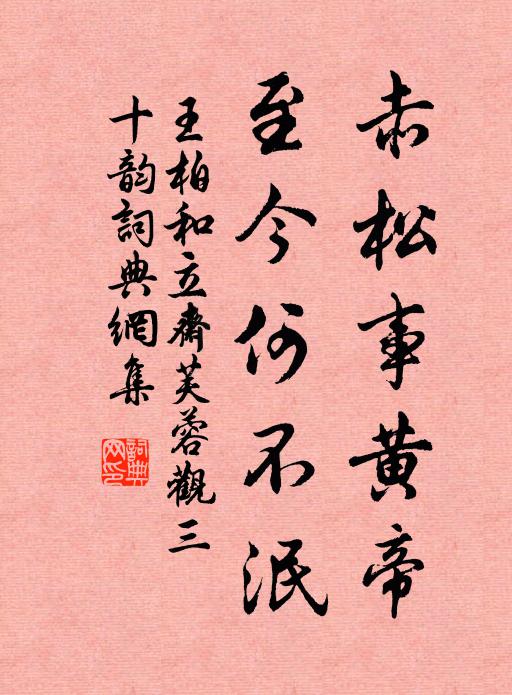 赤松事黄帝
至今何不泯
王柏和立齋芙蓉觀三
十韵詞典網集
詞典
网印